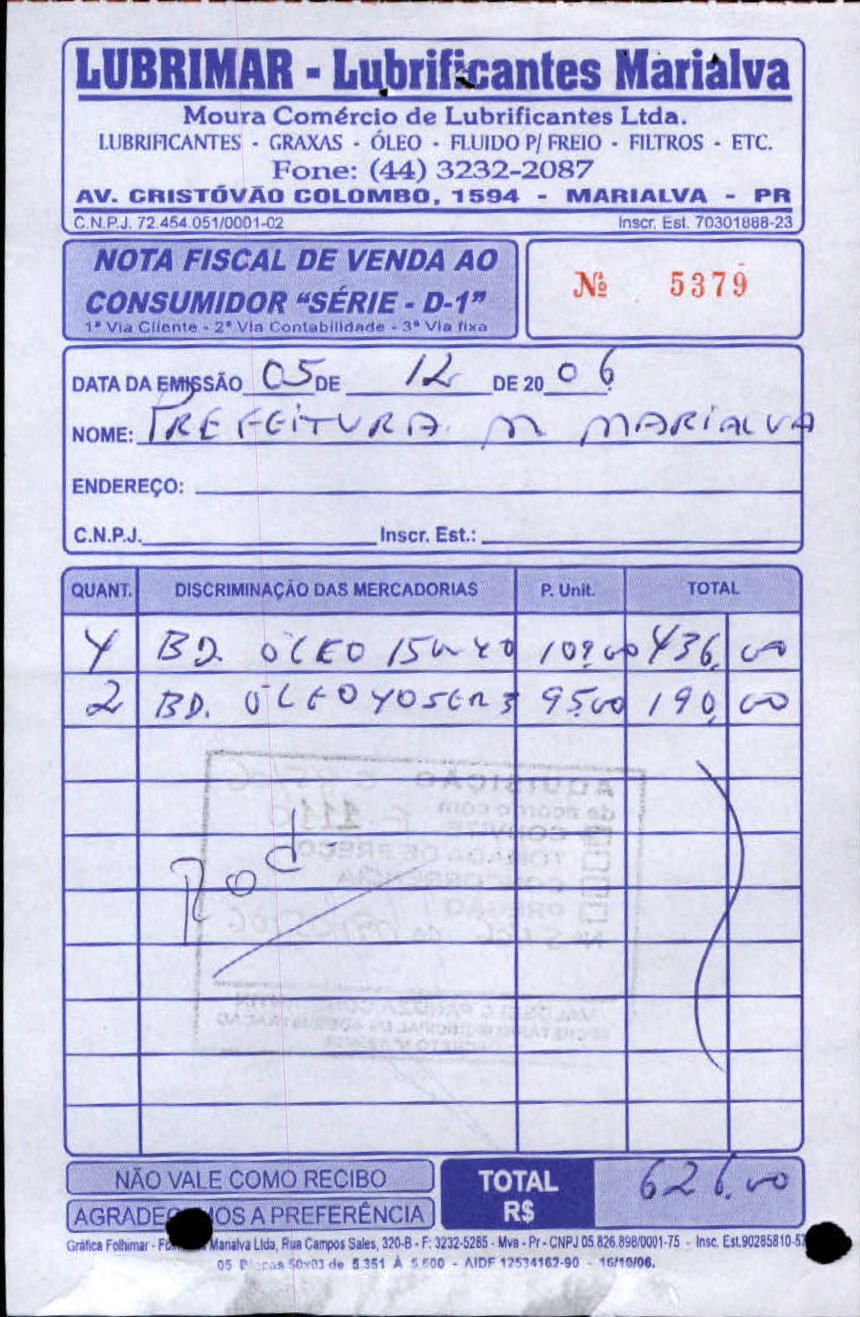 LUBRIMAR - Lubrificantes Marialva
Moura Comércio de Lubrificantes Ltda.
LUBRIFICANTES - GRAXAS - ÓLEO - FLUIDO P/ FREIO - FILTROS - ETC.
Fone: (44) 3232-2087
AV. CRISTÓVÃO COLOMBO, 1594 - MARIALVA - PR
C.N.P.J. 72.454.051/0001-02 Inscr. Est. 70301888-23
NOTA FISCAL DE VENDA AO
CONSUMIDOR "SÉRIE - D-1"
1ª Via Cliente - 2ª Via Contabilidade - 3ª Via fixa
Nº 5379
DATA DA EMISSÃO 05 DE 12 DE 20 06
NOME: PREFEITURA M MARIALVA
ENDEREÇO:
C.N.P.J. Inscr. Est.:
QUANT. DISCRIMINAÇÃO DAS MERCADORIAS P. Unit. TOTAL
4 BD. OLEO 15W40 109,00 436,00
2 BD. OLEO 95,00 190,00
AQUISIÇÃO
de acordo com
CONVITE
TOMADA DE PREÇO
CONCORRÊNCIA
PREGÃO
Rod.
NÃO VALE COMO RECIBO
AGRADECEMOS A PREFERÊNCIA
TOTAL R$ 626,00
Gráfica Folhimar - Marialva Ltda, Rua Campos Sales, 320-B - F: 3232-5285 - Mva - Pr - CNPJ 05.826.898/0001-75 - Insc. Est.90285810-57
05 50x03 de 5.351 À 5.600 - AIDF 12534162-90 - 16/10/06.